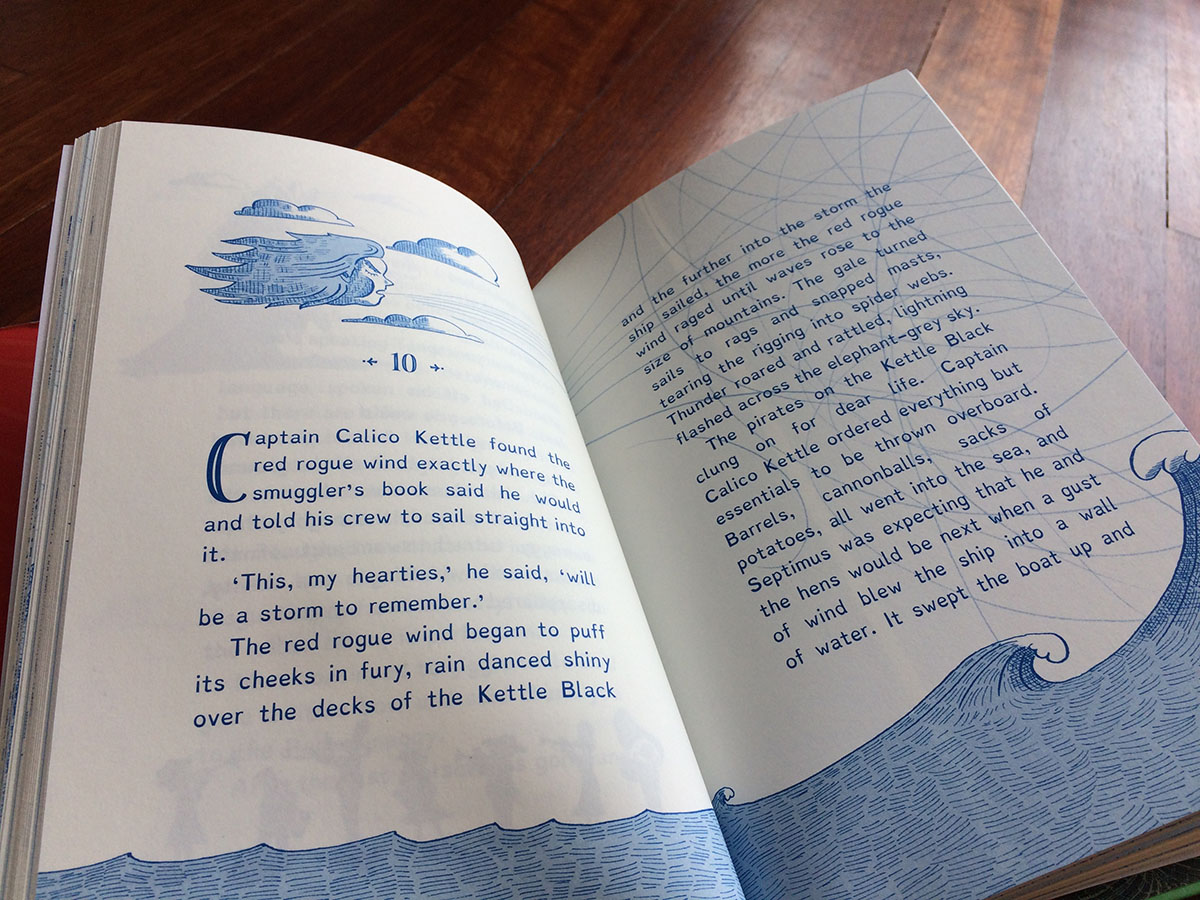 10
Captain Calico Kettle found the
red rogue wind exactly where the
smuggler's book said he would
and told his crew to sail straight into
it.
‘This, my hearties,’ he said, ‘will
be a storm to remember.’
The red rogue wind began to puff
its cheeks in fury, rain danced shiny
over the decks of the Kettle Black
and the further into the storm the
ship sailed, the more the red rogue
wind raged until waves rose to the
size of mountains. The gale turned
sails to rags and snapped masts,
tearing the rigging into spider webs.
Thunder roared and rattled, lightning
flashed across the elephant-grey sky.
The pirates on the Kettle Black
clung on for dear life. Captain
Calico Kettle ordered everything but
essentials to be thrown overboard.
Barrels, cannonballs, sacks of
potatoes, all went into the sea, and
Septimus was expecting that he and
the hens would be next when a gust
of wind blew the ship into a wall
of water. It swept the boat up and